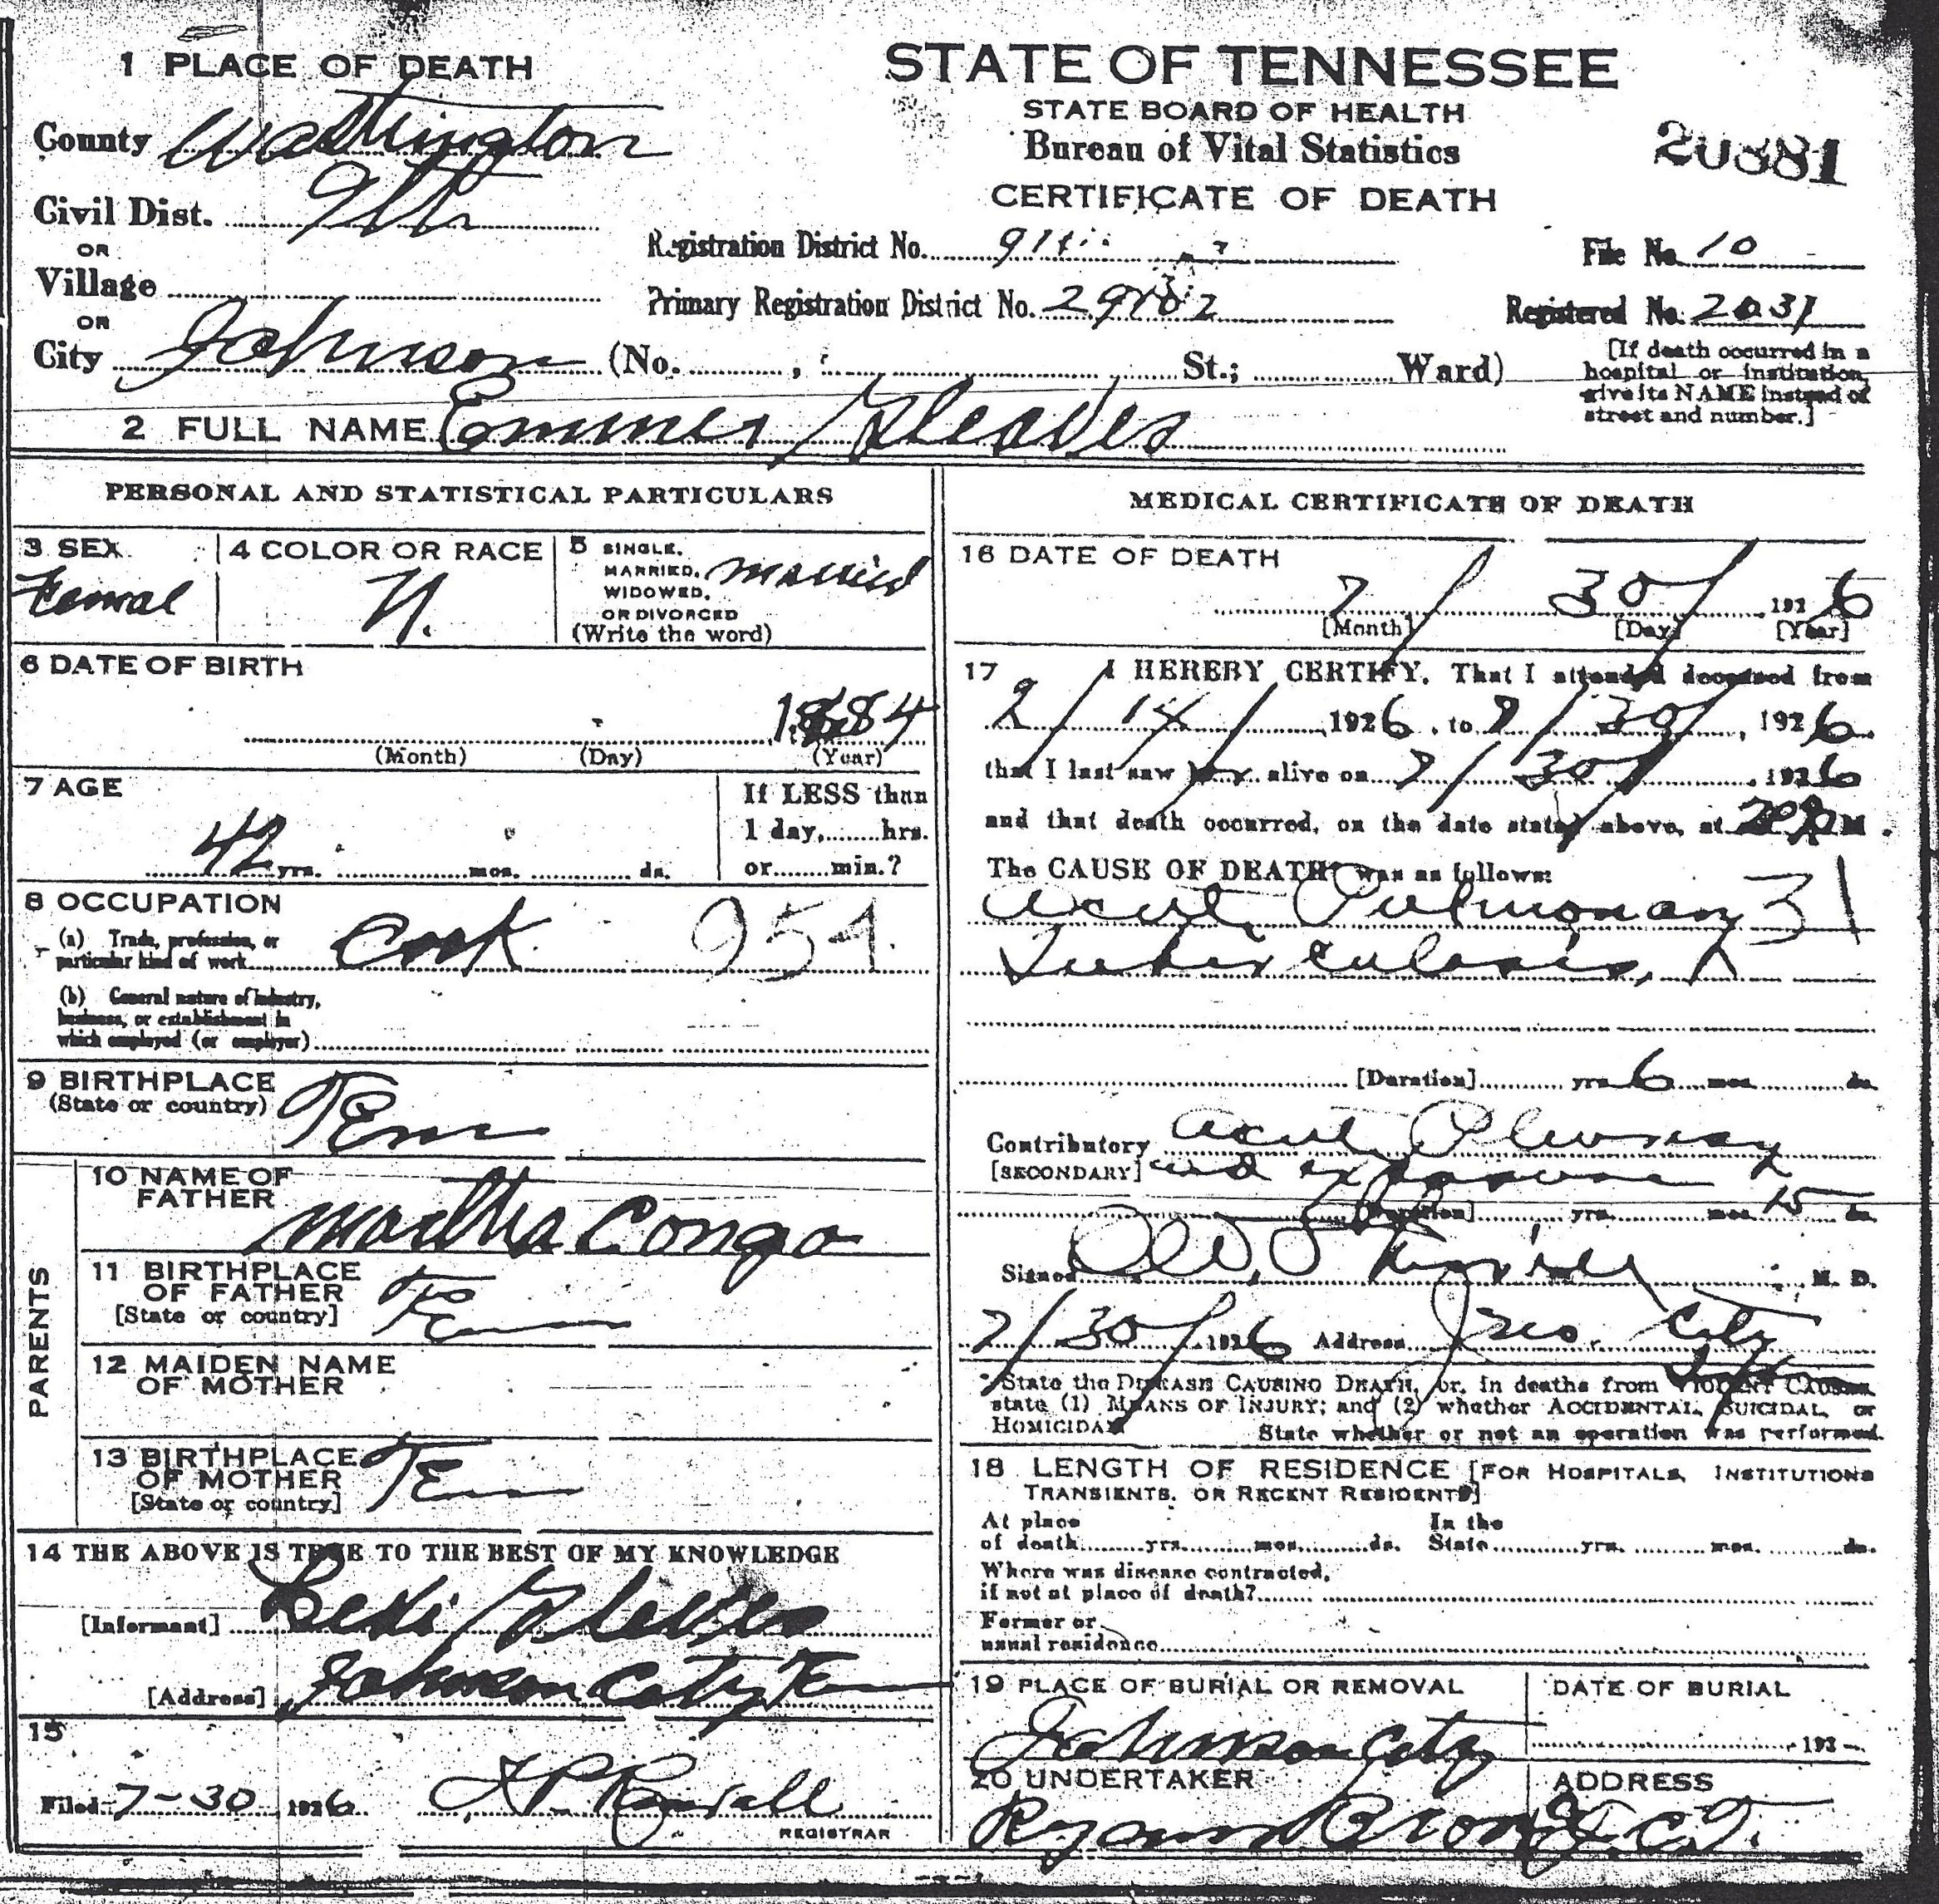 1 PLACE OF DEATH
County Washington
Civil Dist. 9th
OR
Village
OR
City Johnson (No. , St.; Ward)
STATE OF TENNESSEE
STATE BOARD OF HEALTH
Bureau of Vital Statistics
CERTIFICATE OF DEATH
20881
Registration District No.
File No. 10
Primary Registration District No.
Registered No. 2031
[If death occurred in a
hospital or institution,
give its NAME instead of
street and number.]
2 FULL NAME Emmer Gleaves
PERSONAL AND STATISTICAL PARTICULARS
3 SEX
Femal
4 COLOR OR RACE
N.
5 SINGLE,
MARRIED,
WIDOWED,
OR DIVORCED
(Write the word)
married
6 DATE OF BIRTH
1884
(Month) (Day) (Year)
7 AGE
42 yrs. mos. ds.
If LESS than
1 day, hrs.
or min.?
8 OCCUPATION
(a) Trade, profession, or
particular kind of work Cook 954
(b) General nature of industry,
business, or establishment in
which employed (or employer)
9 BIRTHPLACE
(State or country) Tenn
PARENTS
10 NAME OF
FATHER
Congo
11 BIRTHPLACE
OF FATHER
[State or country] Tenn
12 MAIDEN NAME
OF MOTHER
13 BIRTHPLACE
OF MOTHER
[State or country] Tenn
14 THE ABOVE IS TRUE TO THE BEST OF MY KNOWLEDGE
[Informant]
[Address] Johnson City Tenn
15
Filed 7-30 1926
REGISTRAR
MEDICAL CERTIFICATE OF DEATH
16 DATE OF DEATH
7 / 30 / 1926
[Month] [Day] [Year]
17 I HEREBY CERTIFY, That I attended deceased from
2 / 14 / 1926, to 7 / 30 / 1926
that I last saw her alive on 7 / 30 / 1926
and that death occurred, on the date stated above, at M.
The CAUSE OF DEATH* was as follows:
Acut Pulmonary 31
Tuberculosis
[Duration] yrs 6 mos ds.
Contributory acut Pleurisy
[SECONDARY] and exposure
[Duration] yrs. mos 15 ds.
Signed M. D.
7/30/1926 Address Jno. City
*State the DISEASE CAUSING DEATH, or, in deaths from VIOLENT CAUSES,
state (1) MEANS OF INJURY; and (2) whether ACCIDENTAL, SUICIDAL, or
HOMICIDAL State whether or not an operation was performed.
18 LENGTH OF RESIDENCE [FOR HOSPITALS, INSTITUTIONS
TRANSIENTS, OR RECENT RESIDENTS]
At place
of death yrs. mos. ds.
In the
State yrs. mos. ds.
Where was disease contracted,
if not at place of death?
Former or
usual residence
19 PLACE OF BURIAL OR REMOVAL
Johnson City
DATE OF BURIAL
192
20 UNDERTAKER
ADDRESS
J.C.T.